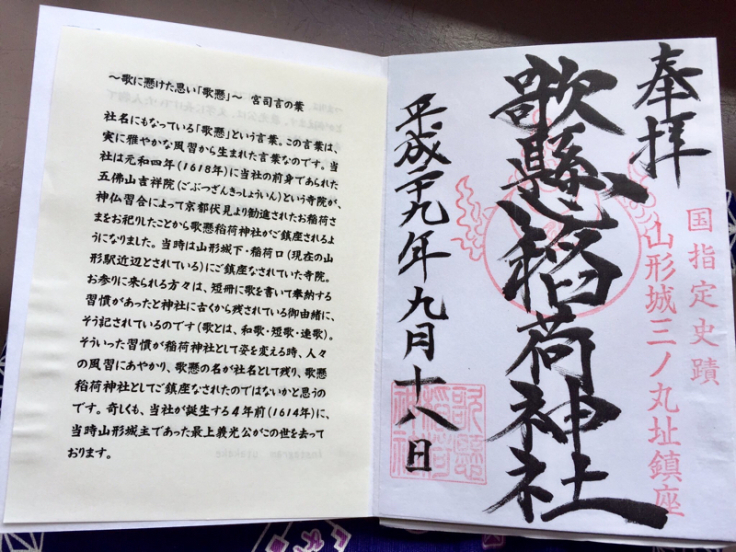 ~歌に懸けた思い「歌懸」~ 宮司言の葉
社名にもなっている「歌懸」という言葉。この言葉は、
実に雅やかな風習から生まれた言葉なのです。当
社は元和四年(1618年)に当社の前身であられた
五佛山吉祥院(ごぶつざんきっしょういん)という寺院が、
神仏習合によって京都伏見より勧進されたお稲荷さ
まをお祀りしたことから歌懸稲荷神社がご鎮座されるよ
うになりました。当時は山形城下・稲荷口(現在の山
形駅近辺とされている)にご鎮座なされていた寺院。
お参りに来られる方々は、短冊に歌を書いて奉納する
習慣があったと神社に古くから残されている御由緒に、
そう記されているのです(歌とは、和歌・短歌・連歌)。
そういった習慣が稲荷神社として姿を変える時、人々
の風習にあやかり、歌懸の名が社名として残り、歌懸
稲荷神社としてご鎮座なされたのではないかと思うの
です。奇しくも、当社が誕生する4年前(1614年)に、
当時山形城主であった最上義光公がこの世を去って
おります。
奉拝
国指定史蹟
山形城三ノ丸址鎮座
歌懸稲荷神社
平成二十九年九月十八日
歌懸
稲荷
神社